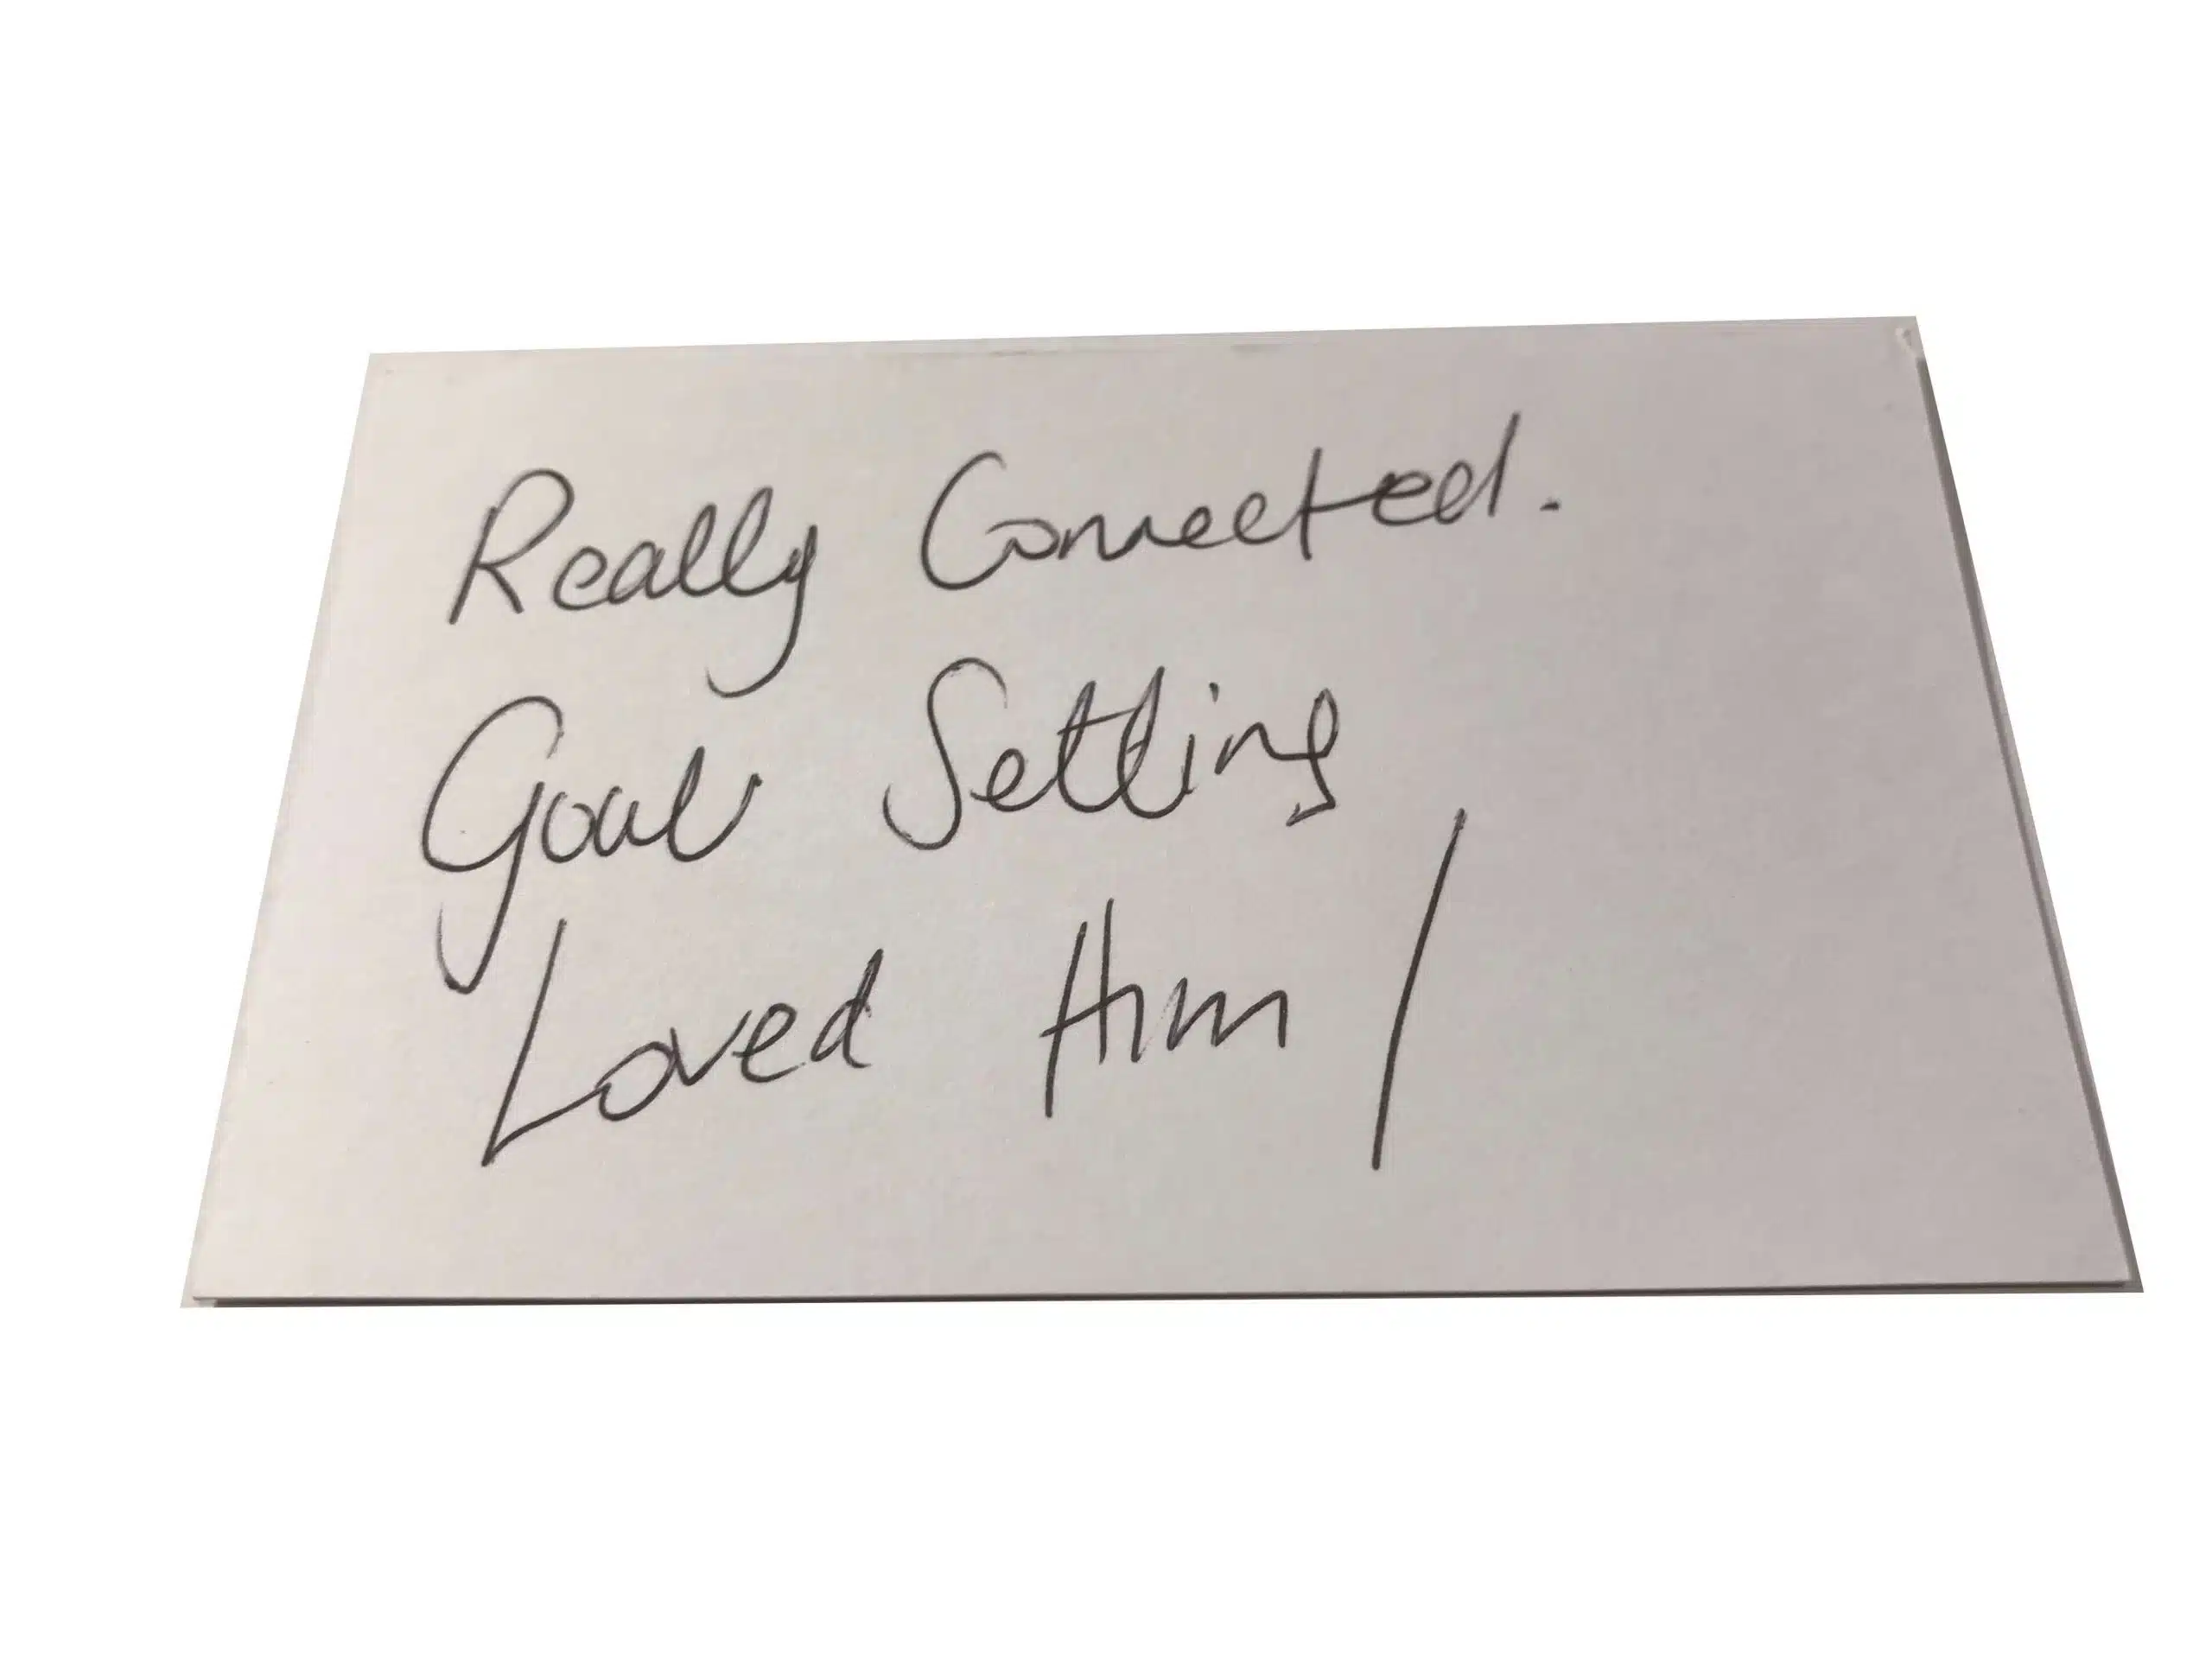 Really Connected.
Goal Setting
Loved Him!